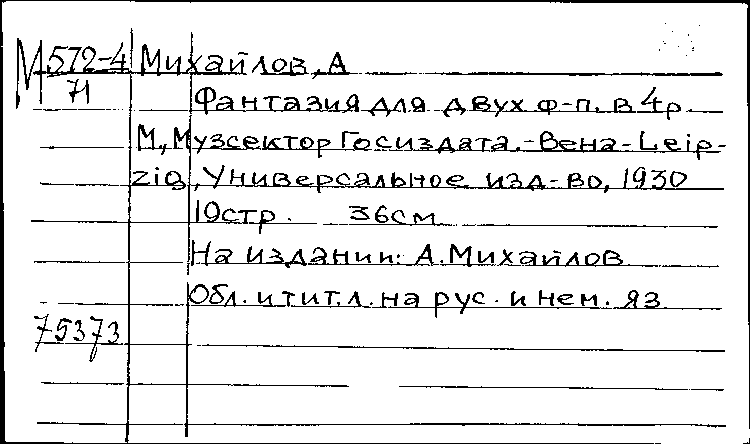 М 572-4 Михайлов, А
71
Фантазия для двух ф-п. в 4 р.
М., Музсектор Госиздата.-Вена-Leip-
zig, Универсальное изд-во, 1930
19стр. 36см
На издании: А.Михайлов
Обл. и тит.л. на рус. и нем. яз
75373